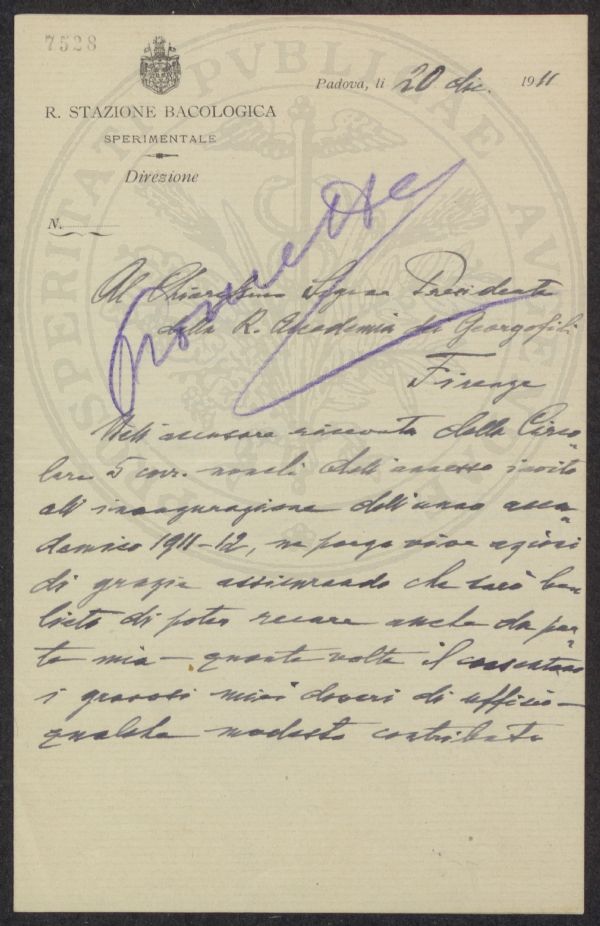 7528
Padova, li 20 dic. 1911
R. STAZIONE BACOLOGICA
SPERIMENTALE
Direzione
N.
promesse
Al Chiarissimo Signor Presidente
della R. Accademia dei Georgofili
Firenze
Nell'accusare ricevuta della Circo
lare 5 corr. nonché dell'annesso invito
all'inaugurazione dell'anno acca
demico 1911-12, ne porgo vive azioni
di grazie assicurando che sarò ben
lieto di poter recare anche da par
te mia – quante volte il consentano
i gravosi miei doveri di ufficio –
qualche modesto contributo
PUBLICAE
PROSPERITATI